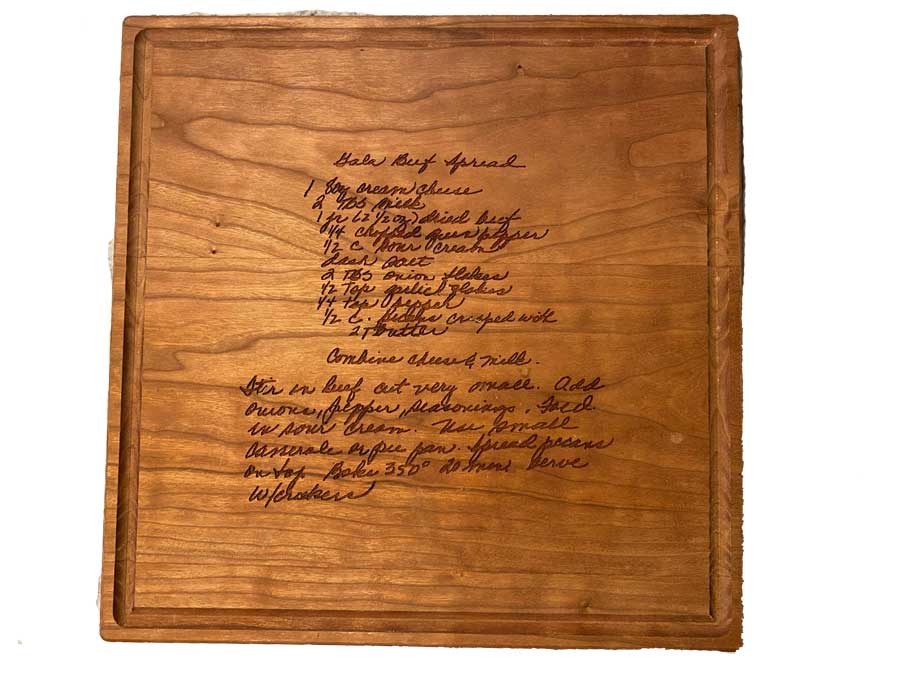 Gala Beef Spread
1 8oz cream cheese
2 TBS Milk
1 jr (2 1/2 oz) dried beef
1/4 chopped green pepper
1/2 c. sour cream
dash salt
2 TBS onion flakes
1/2 Tsp garlic flakes
1/4 tsp pepper
1/2 c. pecans crisped with
2T butter
Combine cheese & milk.
Stir in beef cut very small. Add
onions, pepper, seasonings. Fold
in sour cream. Use small
casserole or pie pan. Spread pecans
on top. Bake 350° 20 mins Serve
W/crackers